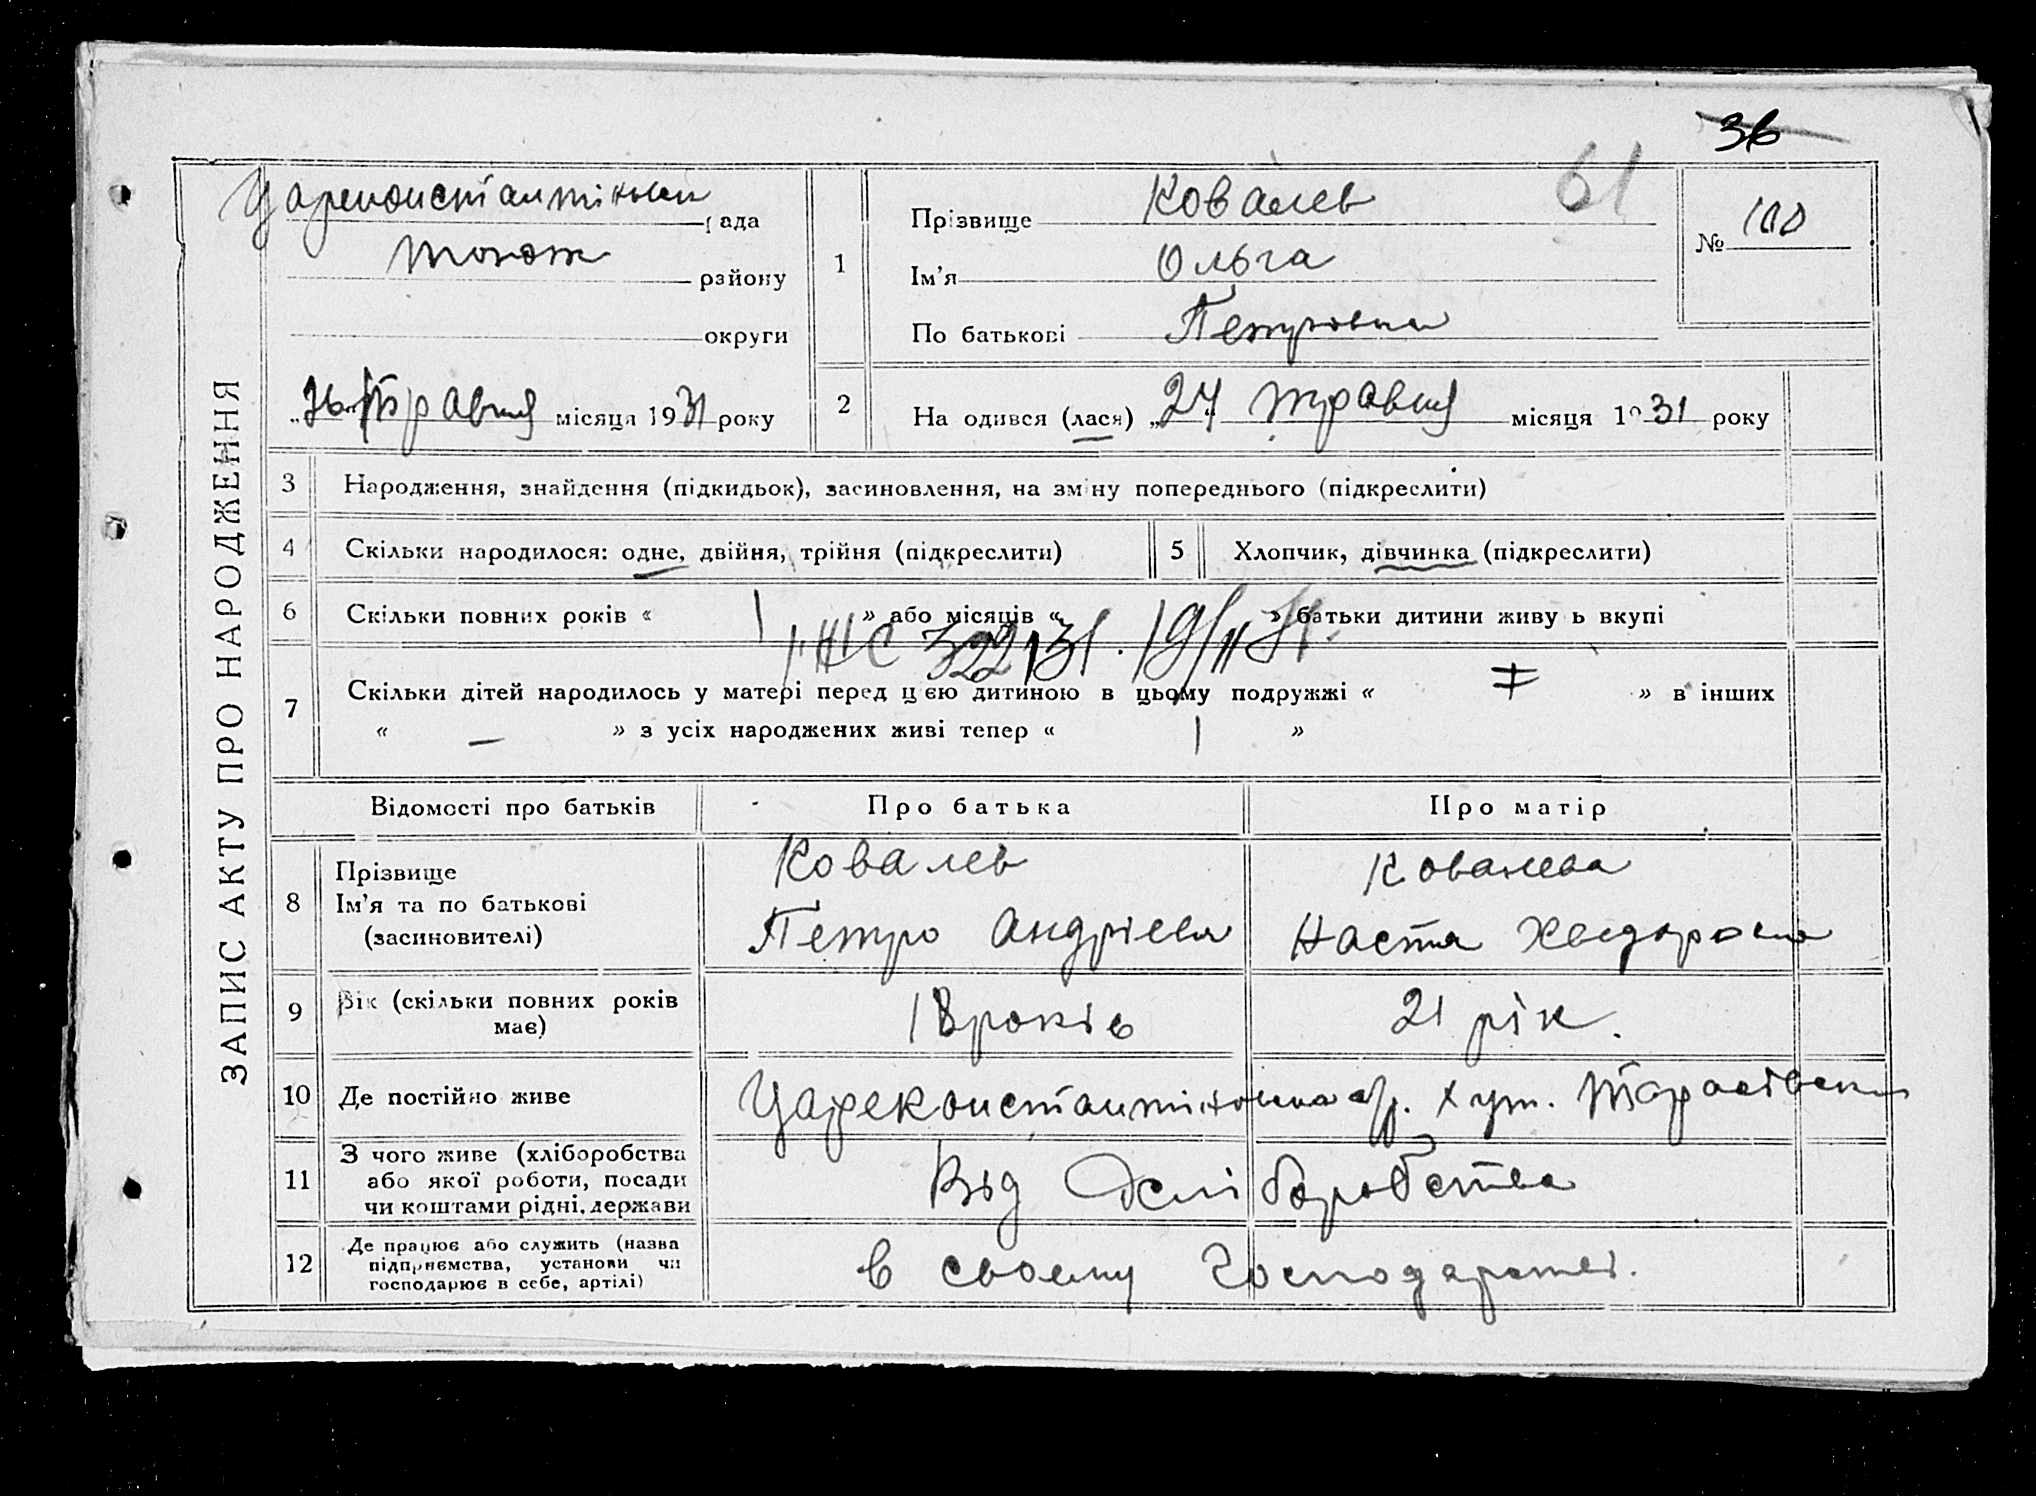 36
61
Цареконстантінська рада
токож району
округи
"26" Травня місяця 1931 року
ЗАПИС АКТУ ПРО НАРОДЖЕННЯ
1
Прізвище Ковалев
Ім'я Ольга
По батькові Петровна
№ 100
2
Народився (лася) "24" травня місяця 1931 року
3 Народження, знайдення (підкидьок), засиновлення, на зміну попереднього (підкреслити)
4 Скільки народилося: одне, двійня, трійня (підкреслити)
5 Хлопчик, дівчинка (підкреслити)
6 Скільки повних років « 1 » або місяців « » батьки дитини живуть вкупі
322 31. 19/II 31.
7 Скільки дітей народилось у матері перед цією дитиною в цьому подружжі « » в інших
« — » з усіх народжених живі тепер « 1 »
Відомості про батьків Про батька Про матір
8 Прізвище
Ім'я та по батькові
(засиновителі)
Ковалев
Петро Андрієвич
Ковалева
Настя Хведоровна
9 Вік (скільки повних років
має)
18 років
21 рік.
10 Де постійно живе
Цареконстантіновка с/р. хут. Тарасівська
11 З чого живе (хліборобства
або якої роботи, посади
чи коштами рідні, держави
Від хліборобства
12 Де працює або служить (назва
підприємства, установи чи
господарює в себе, артілі)
в своему господарстві.